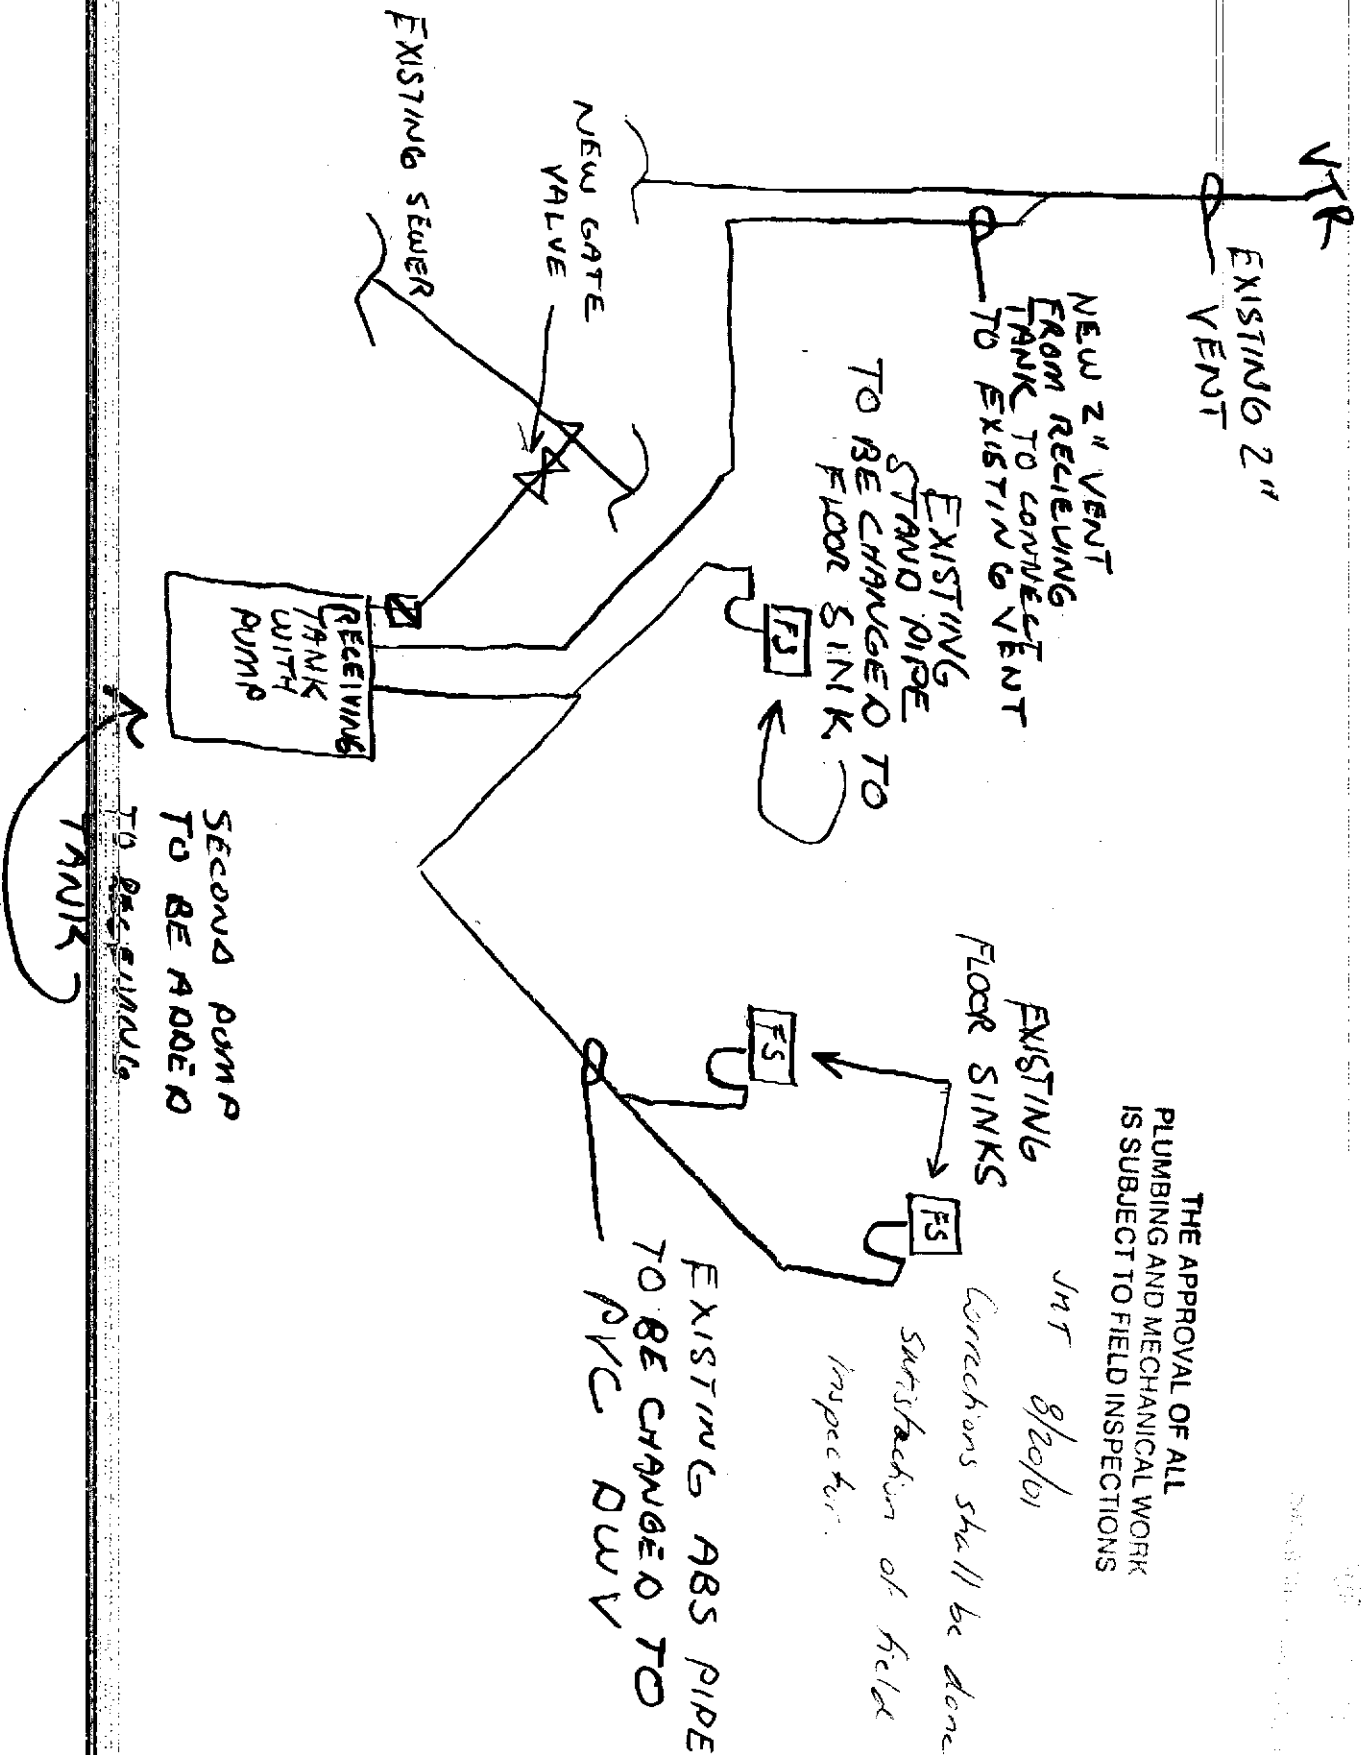 VTR
EXISTING 2"
VENT
NEW 2" VENT
FROM RECIEVING
TANK TO CONNECT
TO EXISTING VENT
EXISTING
STAND PIPE
TO BE CHANGED TO
FLOOR SINK
FS
NEW GATE
VALVE
EXISTING SEWER
RECEIVING
TANK
WITH
PUMP
SECOND PUMP
TO BE ADDED
TO RECEIVING
TANK
EXISTING
FLOOR SINKS
FS
FS
EXISTING ABS PIPE
TO BE CHANGED TO
PVC DWV
THE APPROVAL OF ALL
PLUMBING AND MECHANICAL WORK
IS SUBJECT TO FIELD INSPECTIONS
JMT 8/20/01
Corrections shall be done
satisfaction of field
inspector.